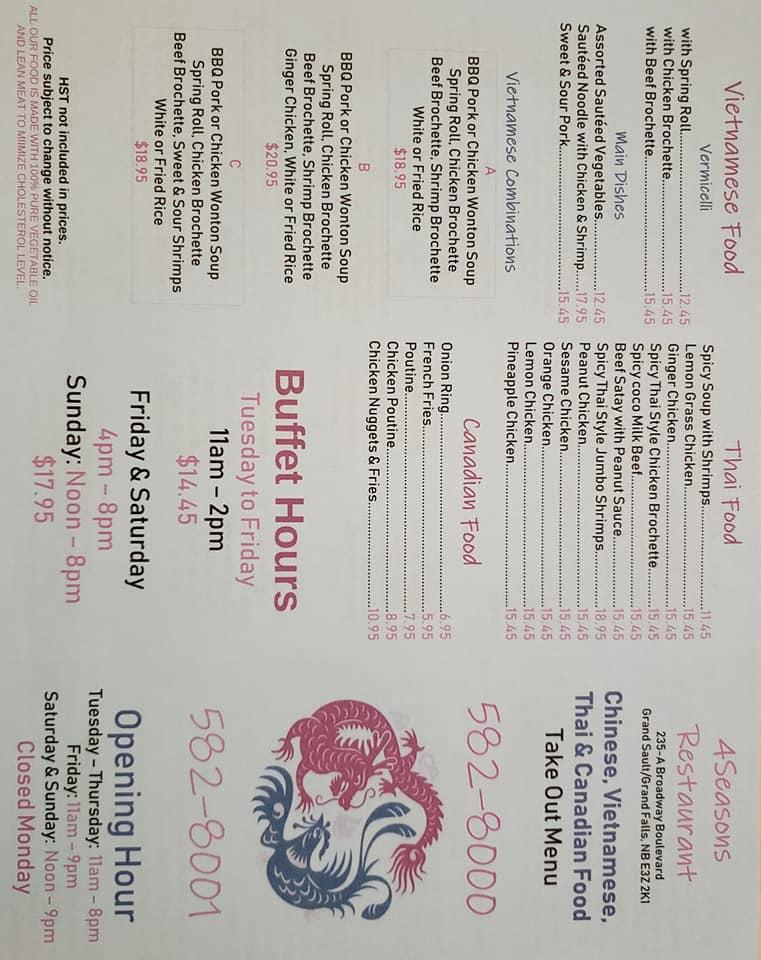 Vietnamese Food
Vermicelli
with Spring Roll..........12.45
with Chicken Brochette..........15.45
with Beef Brochette..........15.45
Main Dishes
Assorted Sautéed Vegetables..........12.45
Sautéed Noodle with Chicken & Shrimp.....17.95
Sweet & Sour Pork..........15.45
Vietnamese Combinations
A
BBQ Pork or Chicken Wonton Soup
Spring Roll, Chicken Brochette
Beef Brochette, Shrimp Brochette
White or Fried Rice
$18.95
B
BBQ Pork or Chicken Wonton Soup
Spring Roll, Chicken Brochette
Beef Brochette, Shrimp Brochette
Ginger Chicken, White or Fried Rice
$20.95
C
BBQ Pork or Chicken Wonton Soup
Spring Roll, Chicken Brochette
Beef Brochette, Sweet & Sour Shrimps
White or Fried Rice
$18.95
HST not included in prices.
Price subject to change without notice.
ALL OUR FOOD IS MADE WITH 100% PURE VEGETABLE OIL
AND LEAN MEAT TO MIIMIZE CHOLESTEROL LEVEL.
Thai Food
Spicy Soup with Shrimps..........11.45
Lemon Grass Chicken..........15.45
Ginger Chicken..........15.45
Spicy Thai Style Chicken Brochette.....15.45
Spicy coco Milk Beef..........15.45
Beef Satay with Peanut Sauce..........15.45
Spicy Thai Style Jumbo Shrimps..........18.95
Peanut Chicken..........15.45
Sesame Chicken..........15.45
Orange Chicken..........15.45
Lemon Chicken..........15.45
Pineapple Chicken..........15.45
Canadian Food
Onion Ring..........6.95
French Fries..........5.95
Poutine..........7.95
Chicken Poutine..........8.95
Chicken Nuggets & Fries..........10.95
Buffet Hours
Tuesday to Friday
11am – 2pm
$14.45
Friday & Saturday
4pm – 8pm
Sunday: Noon – 8pm
$17.95
4Seasons
Restaurant
235-A Broadway Boulevard
Grand Sault/Grand Falls, NB E3Z 2K1
Chinese, Vietnamese,
Thai & Canadian Food
Take Out Menu
582-8000
582-8001
Opening Hour
Tuesday – Thursday: 11am – 8pm
Friday: 11am – 9pm
Saturday & Sunday: Noon – 9pm
Closed Monday